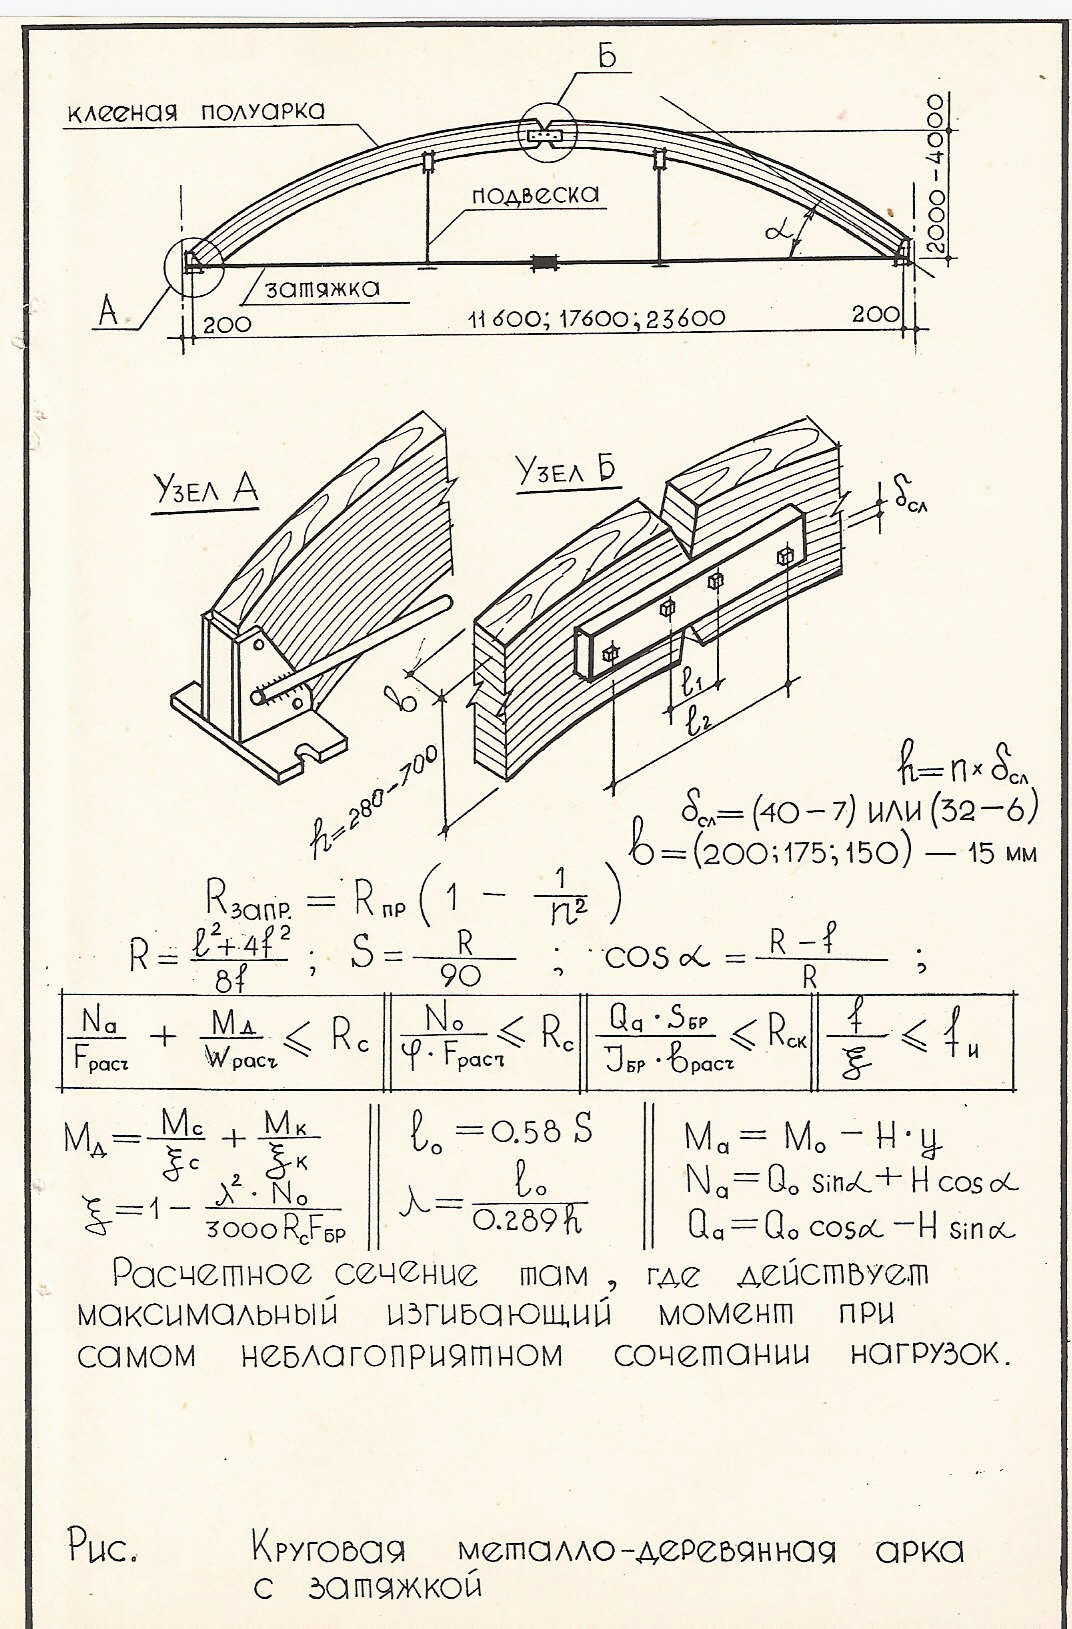 Б
клееная полуарка
подвеска
2000-4000
α
затяжка
А
200
11600; 17600; 23600
200
Узел А
Узел Б
δсл
b
l1
l2
h=280-700
h=n×δсл
δсл=(40-7) или (32-6)
b=(200;175;150) — 15 мм
Rзапр. = Rпр (1 - 1/n²)
R = (l²+4f²)/8f ; S = R/90 ; cos α = (R-f)/R ;
Na/Fрасч + Mд/Wрасч ⩽ Rc
No/(φ·Fрасч) ⩽ Rc
Qa·Sбр/(Jбр·bрасч) ⩽ Rск
f/ξ ⩽ fи
Mд = Mc/ξc + Mк/ξк
ξ = 1 - λ²·No/(3000RcFбр)
lo = 0.58 S
λ = lo/0.289h
Ma = Mo - H·y
Na = Qo sinα + H cosα
Qa = Qo cosα - H sinα
Расчетное сечение там, где действует
максимальный изгибающий момент при
самом неблагоприятном сочетании нагрузок.
Рис. Круговая металло-деревянная арка
с затяжкой